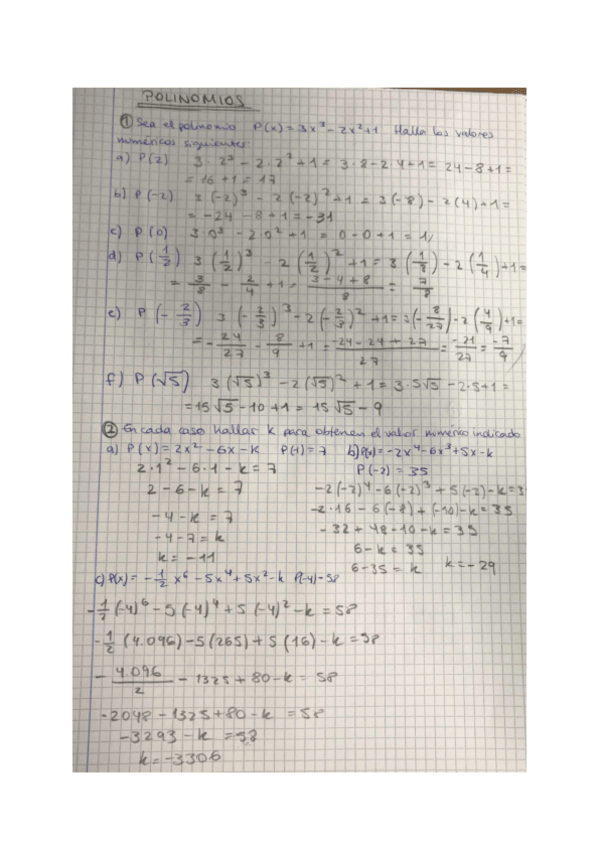 POLINOMIOS
① Sea el polinomio P(x) = 3x³ - 2x² + 1 Halla los valores
numéricos siguientes:
a) P(2) 3 · 2³ - 2 · 2² + 1 = 3 · 8 - 2 · 4 + 1 = 24 - 8 + 1 =
= 16 + 1 = 17
b) P(-2) 3(-2)³ - 2(-2)² + 1 = 3(-8) - 2(4) + 1 =
= -24 - 8 + 1 = -31
c) P(0) 3·0³ - 2·0² + 1 = 0 - 0 + 1 = 1
d) P(1/2) 3(1/2)³ - 2(1/2)² + 1 = 3(1/8) - 2(1/4) + 1 =
= 3/8 - 2/4 + 1 = (3 - 4 + 8)/8 = 7/8
e) P(-2/3) 3(-2/3)³ - 2(-2/3)² + 1 = 3(-8/27) - 2(4/9) + 1 =
= -24/27 - 8/9 + 1 = (-24 - 24 + 27)/27 = -21/27 = -7/9
f) P(√5) 3(√5)³ - 2(√5)² + 1 = 3·5√5 - 2·5 + 1 =
= 15√5 - 10 + 1 = 15√5 - 9
② En cada caso hallar k para obtener el valor numérico indicado
a) P(x) = 2x² - 6x - k P(1) = 7
2·1² - 6·1 - k = 7
2 - 6 - k = 7
-4 - k = 7
-4 - 7 = k
k = -11
b) P(x) = -2x⁴ - 6x³ + 5x - k
P(-2) = 35
-2(-2)⁴ - 6(-2)³ + 5(-2) - k = 3
-2·16 - 6(-8) + (-10) - k = 35
-32 + 48 - 10 - k = 35
6 - k = 35
6 - 35 = k k = -29
c) P(x) = -1/2 x⁶ - 5x⁴ + 5x² - k P(-4) = 58
-1/2 (-4)⁶ - 5(-4)⁴ + 5(-4)² - k = 58
-1/2 (4.096) - 5(265) + 5(16) - k = 58
-4.096/2 - 1325 + 80 - k = 58
-2048 - 1325 + 80 - k = 58
-3293 - k = 58
k = -3306